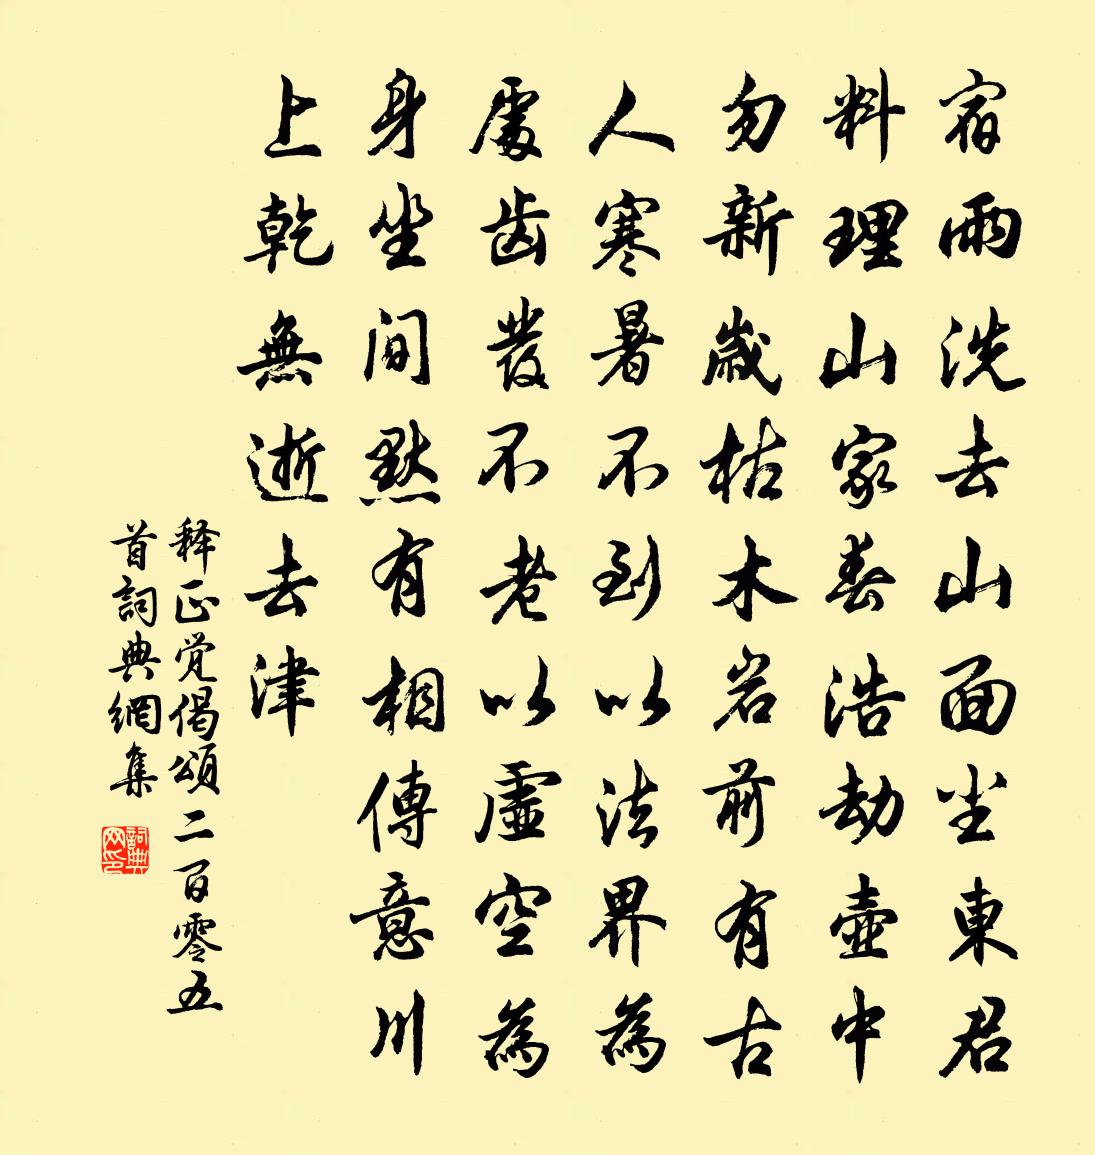 宿雨洗去山面尘東君
料理山家春浩劫壺中
勿新歲枯木岩前有古
人寒暑不到以法界為
處齿發不老以虛空為
身坐间默有相傳意川
上乾無逝去津
释正觉偈頌二百零五
首詞典網集
詞典网印